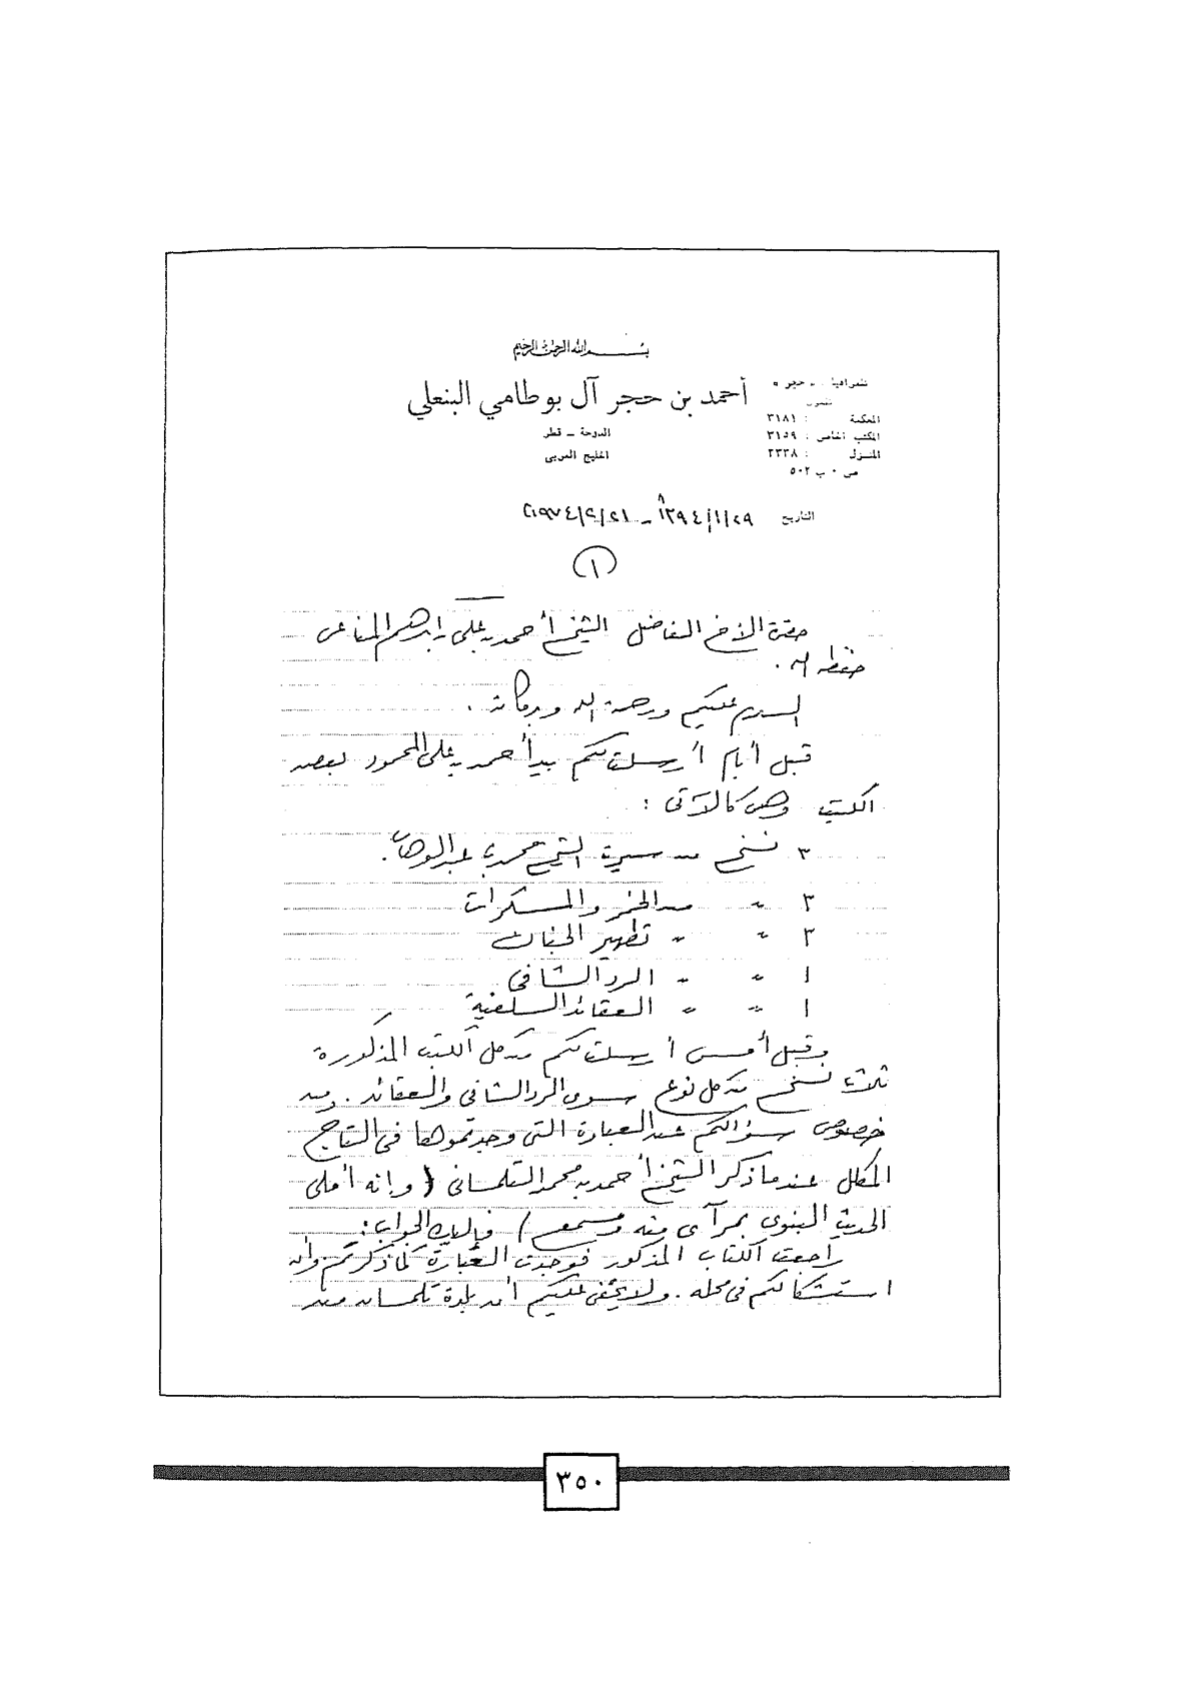 بسم الله الرحمن الرحيم
أحمد بن حجر آل بو طامي البنعلي
الدوحة ــ قطر
الخليج العربي
تلغرافيا : « حجر »
تلفون
المحكمة : ٣١٨١
المكتب الخاص : ٣١٥٩
المنزل : ٢٣٣٨
ص ٠ ب ٥٠٢
التاريخ ٢٩/١/١٣٩٤هـ ــ ٢١/٢/١٩٧٤م
(١)
حضرة الأخ الفاضل الشيخ أحمد بن علي بن إبراهيم المناعي
حفظه الله .
السلام عليكم ورحمة الله وبركاته .
قبل أيام أرسلت لكم بيد أحمد بن علي المحمود بعض
الكتب وهي كالآتي :
٣ نسخ من سيرة الشيخ محمد بن عبد الوهاب .
٣ " من الخمر والمسكرات
٣ " " تطهير الجنان
١ " " الرد الشافي
١ " " العقائد السلفية
وقبل أمس أرسلت لكم من كل الكتب المذكورة
ثلاث نسخ من كل نوع سوى الرد الشافي والعقائد . ومن
خصوص سؤالكم عن العبارة التي وجدتموها في التاج
المكلل عندما ذكر الشيخ أحمد بن محمد التلمساني ( وإنه أملى
الحديث النبوي بمرآى منه ومسمع ) فإليك الجواب :
راجعت الكتاب المذكور فوجدت العبارة كما ذكرتم وإن
استشكالكم في محله . ولا يخفى عليكم أن بلدة تلمسان من
٣٥٠